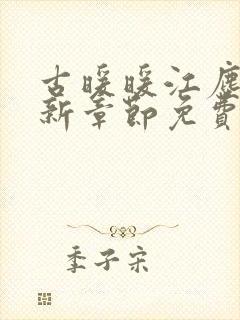 古暖暖江塵
新章節免費
季子宋